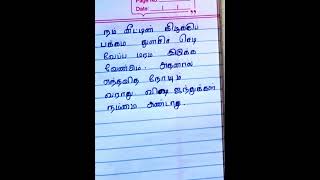 Page No
Date:
நம் வீட்டின் கிழக்குப்
பக்கம் துளசி செடி
வேப்ப மரம் இருக்க
வேண்டும். அதனால்
எந்தவித நோயும்
வராது விஷ ஜந்துக்கள்
நம்மை அண்டாது.